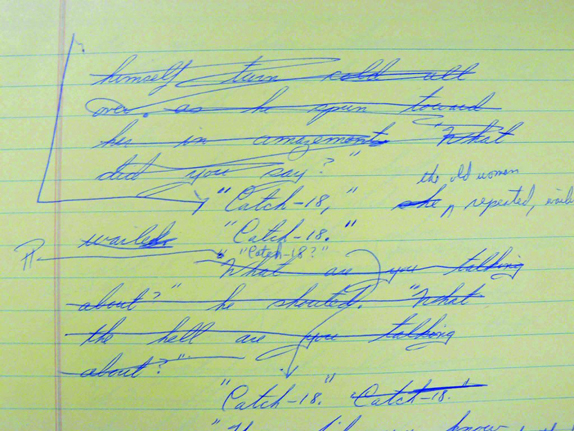 himself turn cold all
over. as he spun toward
her in amazement. "What
did you say?"
the old women
"Catch-18," she repeated,
wailed "Catch-18."
"Catch-18?"
"What are you talking
about?" he shouted. "What
the hell are you talking
about?"
"Catch-18." Catch-18."